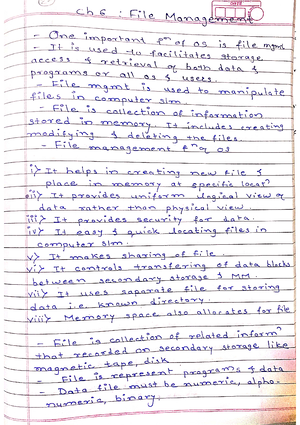 DATE
Ch 6 : File Management
- One important fⁿ of os is file mgmt
- It is used to facilitates storage
access & retrieval of both data &
programs or all os & users.
- File mgmt is used to manipulate
files in computer s/m.
- File is collection of information
stored in memory. It includes creating
modifying & deleting the files
- File management fⁿ of os
i) It helps in creating new file &
place in memory at specific locatⁿ
ii) It provides uniform logical view of
data rather than physical view
iii) It provides security for data.
iv) It easy & quick locating files in
computer s/m.
v) It makes sharing of file
vi) It controls transfering of data blocks
between secondary storage & MM.
vii) It uses saparate file for storing
data i.e. known directory.
viii) Memory space also allocates for file
- File is collection of related informⁿ
that recorded on secondary storage like
magnetic tape, disk
- File is represent programs & data
- Data file must be numeric, alpha-
numeric, binary.